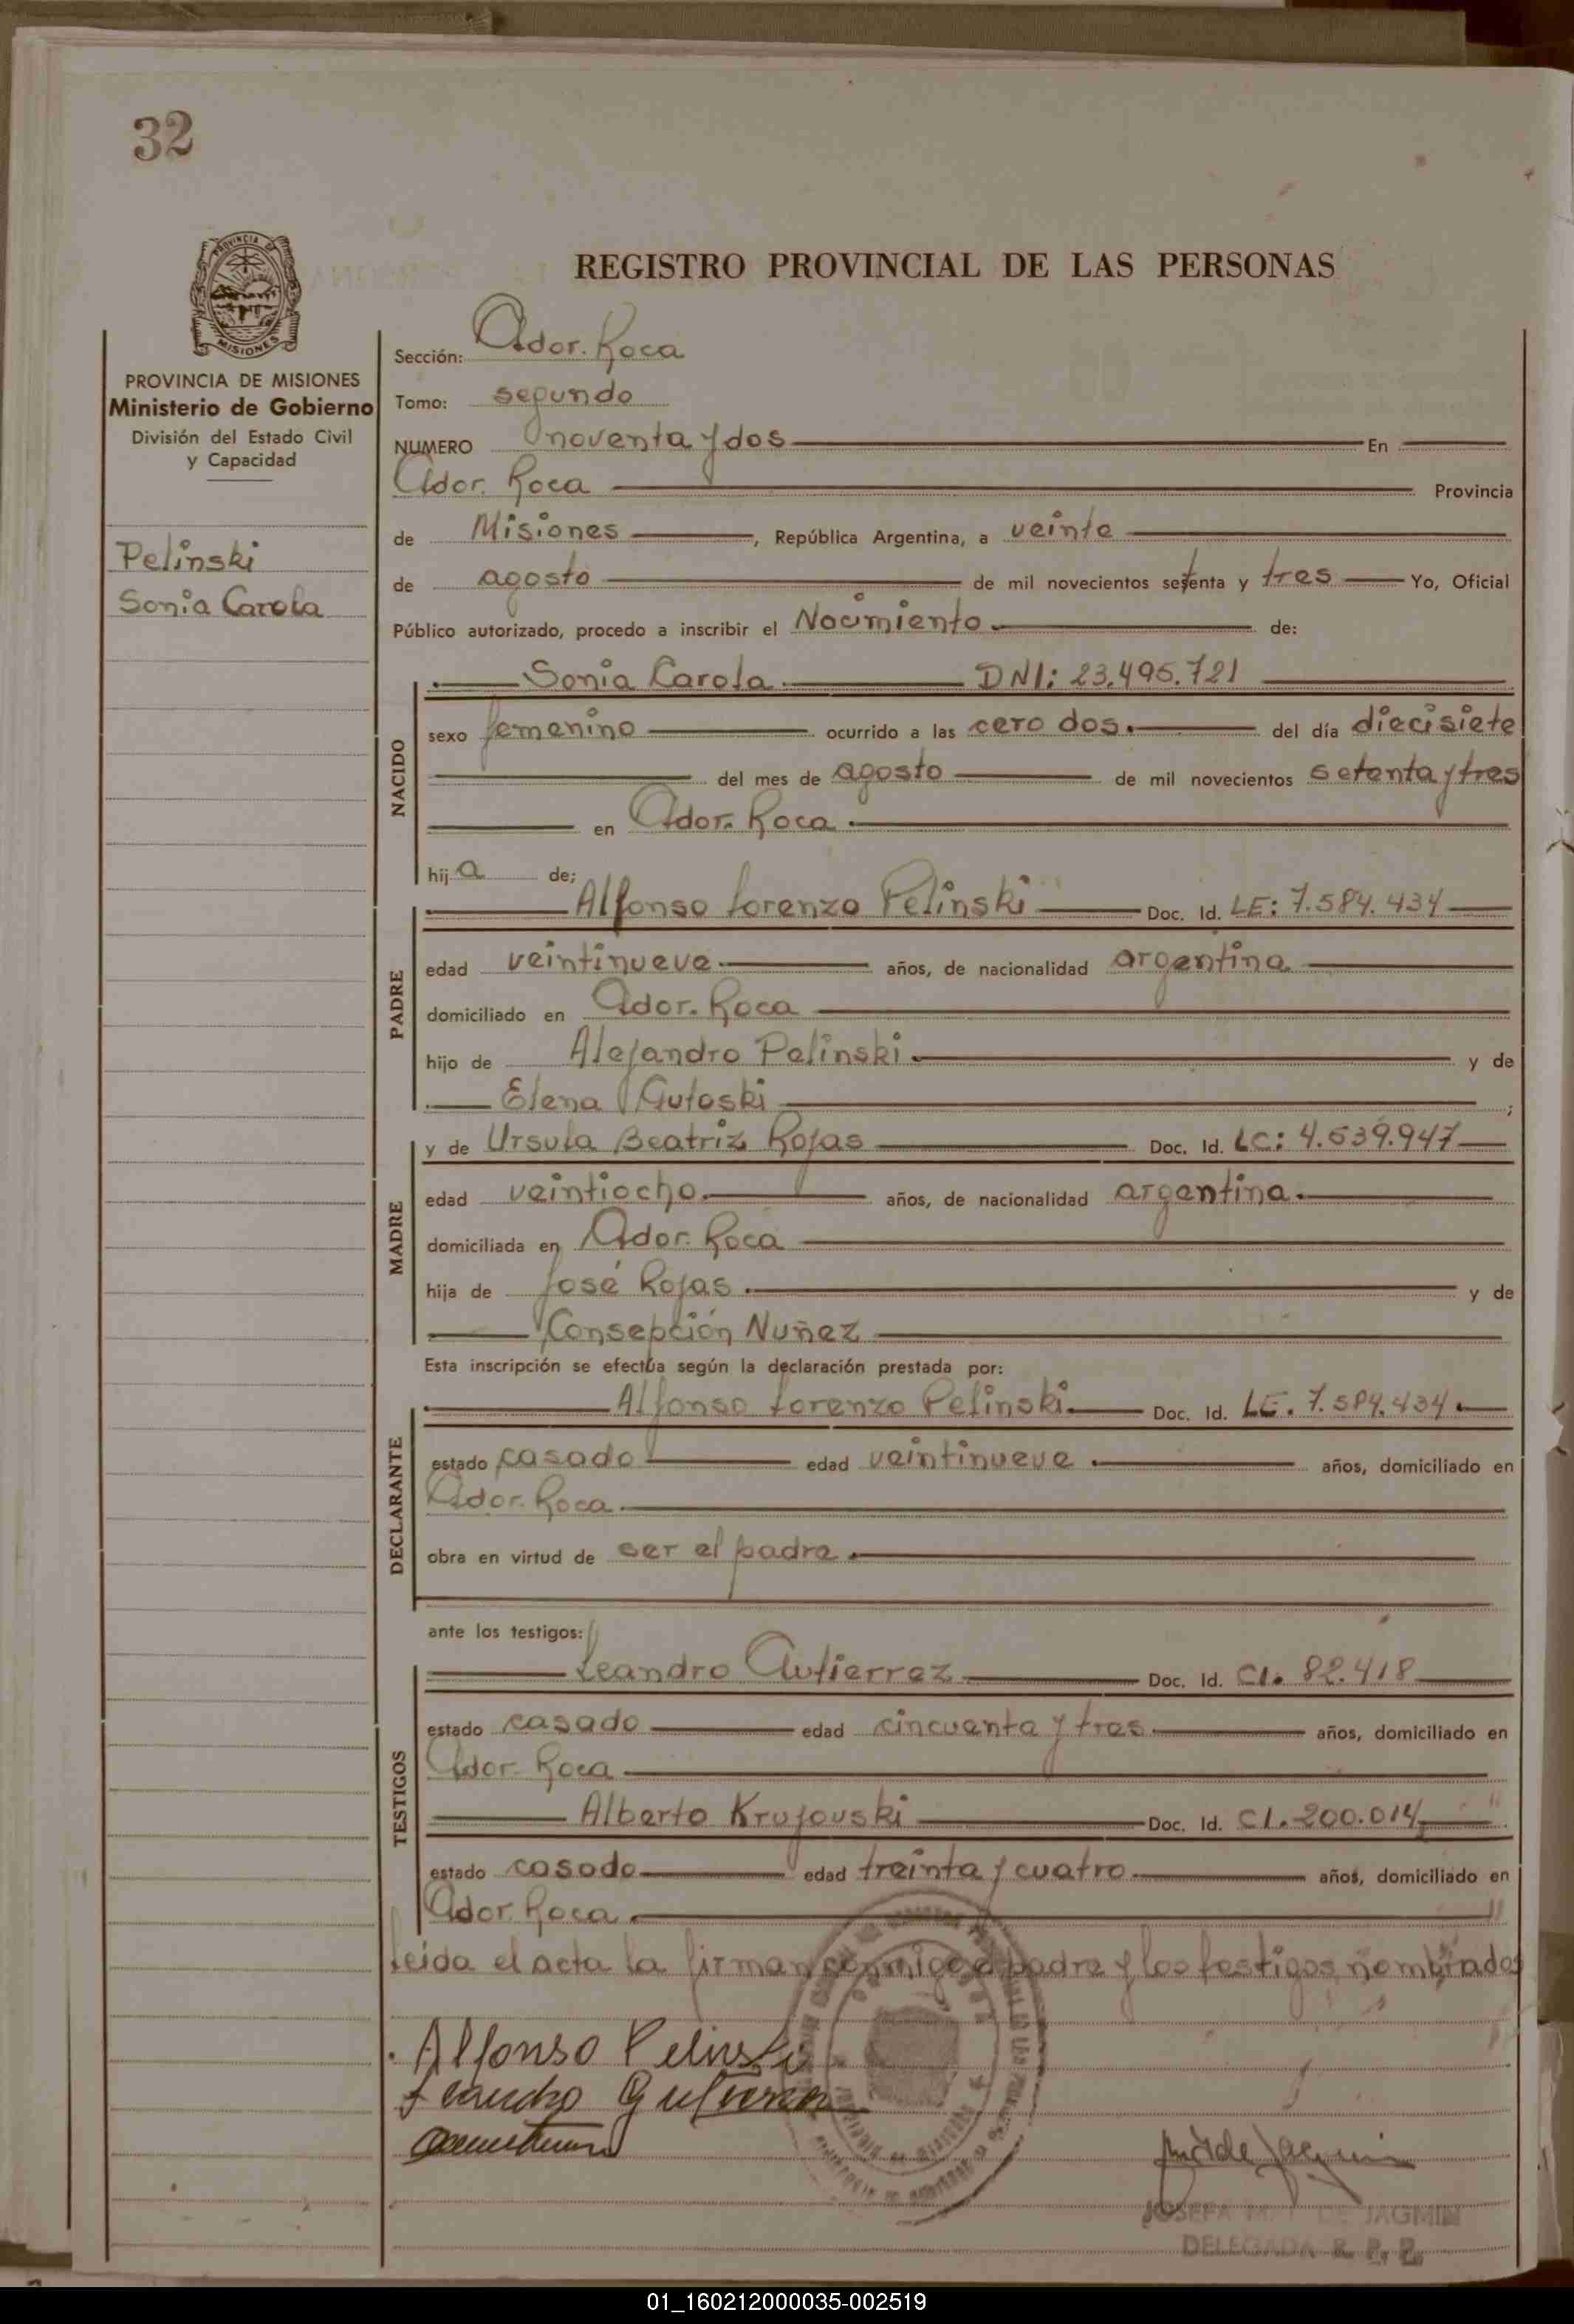 32
PROVINCIA DE
MISIONES
REGISTRO PROVINCIAL DE LAS PERSONAS
PROVINCIA DE MISIONES
Ministerio de Gobierno
División del Estado Civil
y Capacidad
Pelinski
Sonia Carola
Sección: Gdor. Roca
Tomo: segundo
NUMERO noventa y dos En
Gdor. Roca Provincia
de Misiones, República Argentina, a veinte
de agosto de mil novecientos setenta y tres Yo, Oficial
Público autorizado, procedo a inscribir el Nacimiento de:
Sonia Carola DNI: 23.495.721
NACIDO
sexo femenino ocurrido a las cero dos. del día diecisiete
del mes de agosto de mil novecientos setenta y tres
en Gdor. Roca.
hija de;
Alfonso Lorenzo Pelinski Doc. Id. LE: 7.584.434
PADRE
edad veintinueve años, de nacionalidad argentina
domiciliado en Gdor. Roca
hijo de Alejandro Pelinski y de
Elena Gutoski;
y de Ursula Beatriz Rojas Doc. Id. LC: 4.539.947
MADRE
edad veintiocho. años, de nacionalidad argentina.
domiciliada en Gdor. Roca
hija de José Rojas. y de
Consepción Nuñez
Esta inscripción se efectúa según la declaración prestada por:
Alfonso Lorenzo Pelinski. Doc. Id. LE. 7.584.434
DECLARANTE
estado casado edad veintinueve. años, domiciliado en
Gdor. Roca.
obra en virtud de ser el padre.
ante los testigos:
Leandro Gutierrez Doc. Id. CI. 82.418
TESTIGOS
estado casado edad cincuenta y tres años, domiciliado en
Gdor. Roca
Alberto Krujouski Doc. Id. CI. 200.014
estado casado edad treinta y cuatro. años, domiciliado en
Gdor. Roca.
Leida el acta la firman conmigo el padre y los testigos nombrados
Alfonso Pelinski
Leandro Gutierrez
JOSEFA DE JAGMIN
DELEGADA R. P. P.
01_160212000035-002519